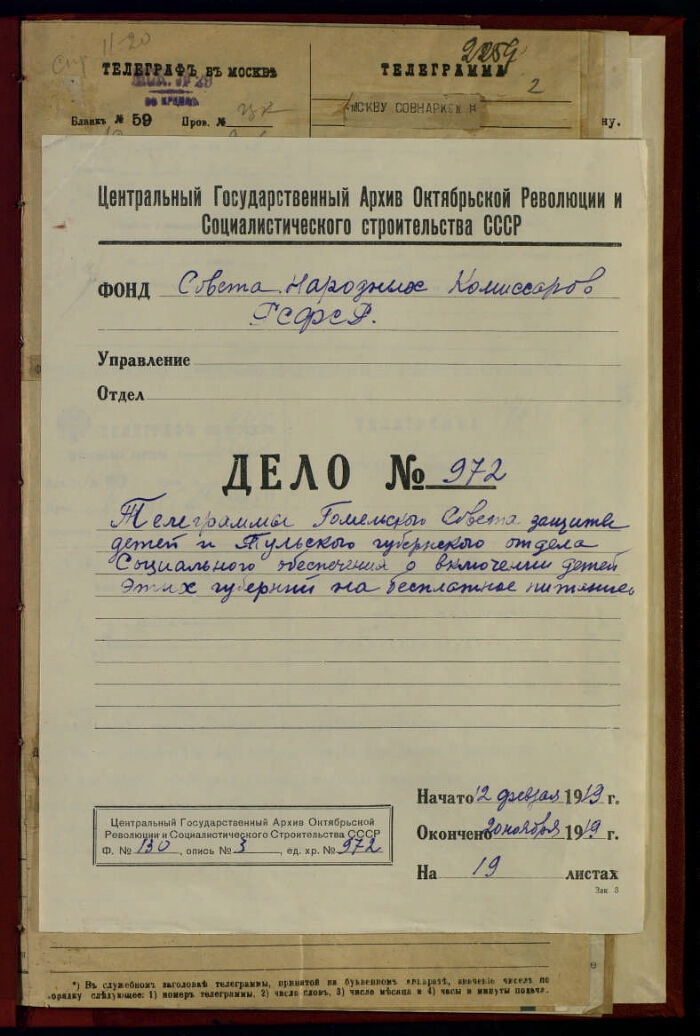 11-20
2259
ТЕЛЕГРАФЪ ВЪ МОСКВѢ
ТЕЛЕГРАММА
2
МОСКВУ СОВНАРКОМ
Бланкъ № 59 Пров. №
ну.
Центральный Государственный Архив Октябрьской Революции и
Социалистического строительства СССР
ФОНД Совета Народных Комиссаров
РСФСР.
Управление
Отдел
ДЕЛО № 972
Телеграммы Гомельского Совета защиты
детей и Тульского губернского отдела
Социального обеспечения о включении детей
этих губерний на бесплатное питание
Начато 12 февраля 1919 г.
Окончено 20 ноября 1919 г.
На 19 листах
Зак 3
Центральный Государственный Архив Октябрьской
Революции и Социалистического Строительства СССР
Ф. № 130, опись № 3, ед. хр. № 972
*) Въ служебном заголовкѣ телеграммы, принятой на буквенном аппаратѣ, значение чиселъ по
порядку слѣдующее: 1) номеръ телеграммы, 2) число слов, 3) число мѣсяца и 4) часы и минуты подачи.